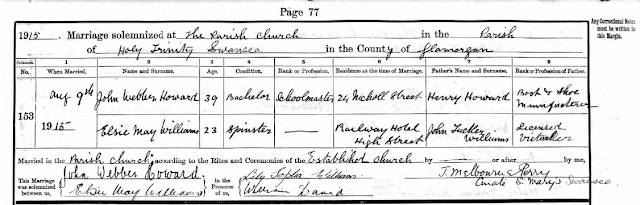 Page 77
1915. Marriage solemnized at The Parish Church in the Parish
of Holy Trinity Swansea in the County of Glamorgan
Any Correctional Notes
must be written in
this Margin.
Columns:— 1 2 3 4 5 6 7 8
No. When Married. Name and Surname. Age. Condition. Rank or Profession. Residence at the time of Marriage. Father's Name and Surname. Rank or Profession of Father.
153
Aug 9th John Webber Howard 39 Bachelor Schoolmaster 24 Nicholl Street Henry Howard Boot & Shoe Manufacturer
1915 Elsie May Williams 23 Spinster — Railway Hotel High Street John Tucker Williams Licensed Victualler
Married in the Parish Church according to the Rites and Ceremonies of the Established Church by — or after — by me,
This Marriage was solemnized between us,
John Webber Howard
Elsie May Williams
in the Presence of us,
Lily Sophia Williams
William David
J. Melbourne Perry
Curate S. Mary's Swansea